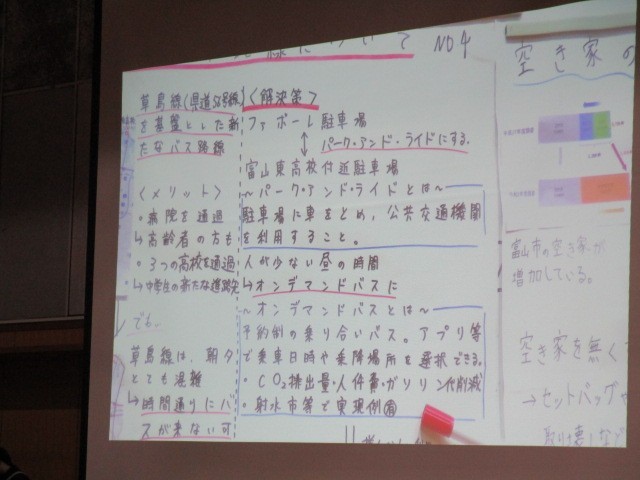 いて NO4
草島線(県道56号線)
を基盤とした新
たなバス路線
〈メリット〉
・病院を通過
↳高齢者の方も
・3つの高校を通過
↳中学生の新たな進路先
でも、
草島線は、朝夕、
とても混雑
↳時間通りにバ
スが来ない可
〈解決策〉
ファボーレ駐車場
↕ パーク・アンド・ライドにする。
富山東高校付近駐車場
～パーク・アンド・ライドとは～
駐車場に車をとめ、公共交通機関
を利用すること。
人が少ない昼の時間
↳オンデマンドバスに
～オンデマンドバスとは～
予約制の乗り合いバス。アプリ等
で乗車日時や乗降場所を選択できる。
・CO2排出量・人件費・ガソリン代削減
・射水市等で実現例有
空き家の
富山市の空き家が
増加している。
空き家を無く
→セットバックや
取り壊しなど